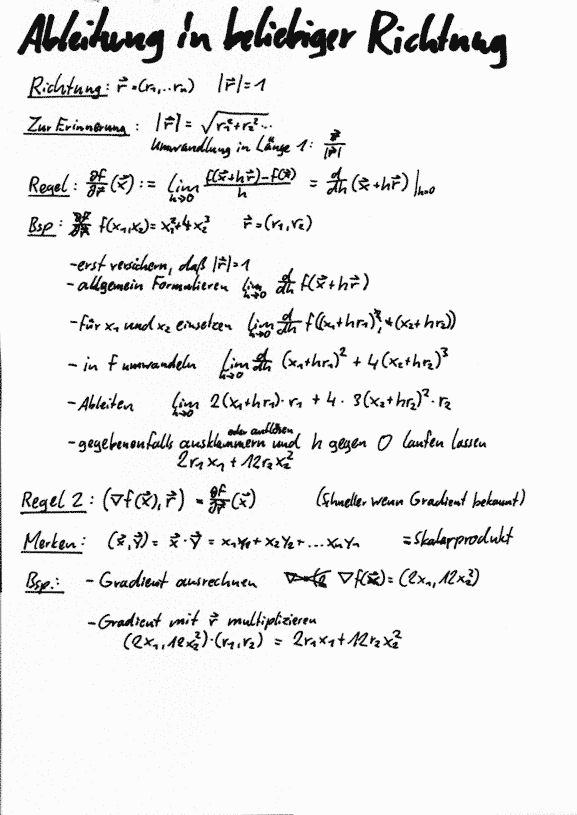 Ableitung in beliebiger Richtung
Richtung: r⃗=(r₁,..rₙ) |r⃗|=1
Zur Erinnerung: |r⃗| = √(r₁²+r₂²...)
Umwandlung in Länge 1: r⃗/|r⃗|
Regel: ∂f/∂r⃗ (x⃗) := lim h→0 (f(x⃗+hr⃗)-f(x⃗))/h = d/dh (x⃗+hr⃗)|h=0
Bsp: f(x₁,x₂)=x₁²+4x₂³ r⃗=(r₁,r₂)
-erst versichern, daß |r⃗|=1
-allgemein Formulieren lim h→0 d/dh f(x⃗+hr⃗)
-für x₁ und x₂ einsetzen lim h→0 d/dh f((x₁+hr₁), (x₂+hr₂))
- in f umwandeln lim h→0 d/dh (x₁+hr₁)² + 4(x₂+hr₂)³
-Ableiten lim h→0 2(x₁+hr₁)·r₁ + 4·3(x₂+hr₂)²·r₂
oder auflösen
-gegebenenfalls ausklammern und h gegen 0 laufen lassen
2r₁x₁+12r₂x₂²
Regel 2: (∇f(x⃗),r⃗) = ∂f/∂r⃗ (x⃗) (schneller wenn Gradient bekannt)
Merken: (x⃗,y⃗) = x⃗·y⃗ = x₁y₁+x₂y₂+...xₙyₙ =Skalarprodukt
Bsp.: -Gradient ausrechnen ∇f(x⃗)=(2x₁,12x₂²)
-Gradient mit r⃗ multiplizieren
(2x₁,12x₂²)·(r₁,r₂) = 2r₁x₁+12r₂x₂²